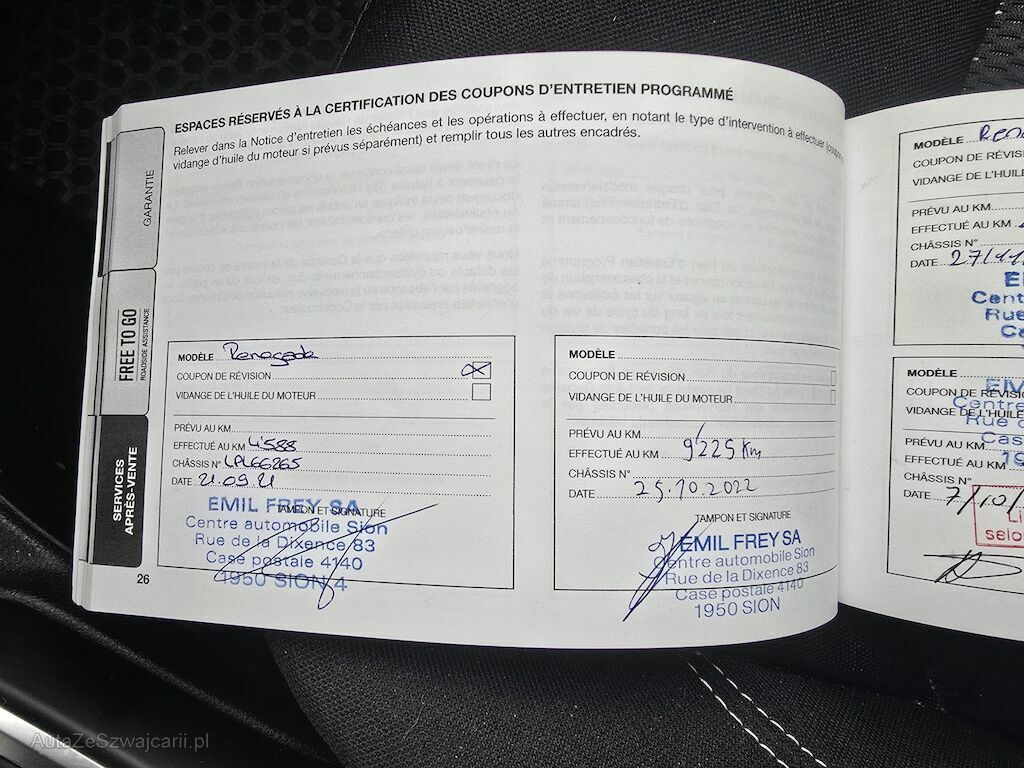 ESPACES RÉSERVÉS À LA CERTIFICATION DES COUPONS D'ENTRETIEN PROGRAMMÉ
Relever dans la Notice d'entretien les échéances et les opérations à effectuer, en notant le type d'intervention à effectuer (coupon,
vidange d'huile du moteur si prévus séparément) et remplir tous les autres encadrés.
GARANTIE
FREE TO GO
ROADSIDE ASSISTANCE
SERVICES
APRÈS-VENTE
26
MODÈLE Renegade
COUPON DE RÉVISION X
VIDANGE DE L'HUILE DU MOTEUR
PRÉVU AU KM
EFFECTUÉ AU KM 4'588
CHÂSSIS N° LPL66265
DATE 21.09.21
TAMPON ET SIGNATURE
EMIL FREY SA
Centre automobile Sion
Rue de la Dixence 83
Case postale 4140
1950 SION 4
MODÈLE
COUPON DE RÉVISION
VIDANGE DE L'HUILE DU MOTEUR
PRÉVU AU KM
EFFECTUÉ AU KM 9'225 Km
CHÂSSIS N°
DATE 25.10.2022
TAMPON ET SIGNATURE
EMIL FREY SA
Centre automobile Sion
Rue de la Dixence 83
Case postale 4140
1950 SION
MODÈLE Ren
COUPON DE RÉVISI
VIDANGE DE L'HUILE
PRÉVU AU KM
EFFECTUÉ AU KM
CHÂSSIS N°
DATE 27/11
E
Cent
Rue
Ca
MODÈLE
COUPON DE RÉVISION
VIDANGE DE L'HUILE
PRÉVU AU KM
EFFECTUÉ AU KM
CHÂSSIS N°
DATE 7/10/
EMI
Centre
Rue d
Cas
19
Li
selo
AutaZeSzwajcarii.pl